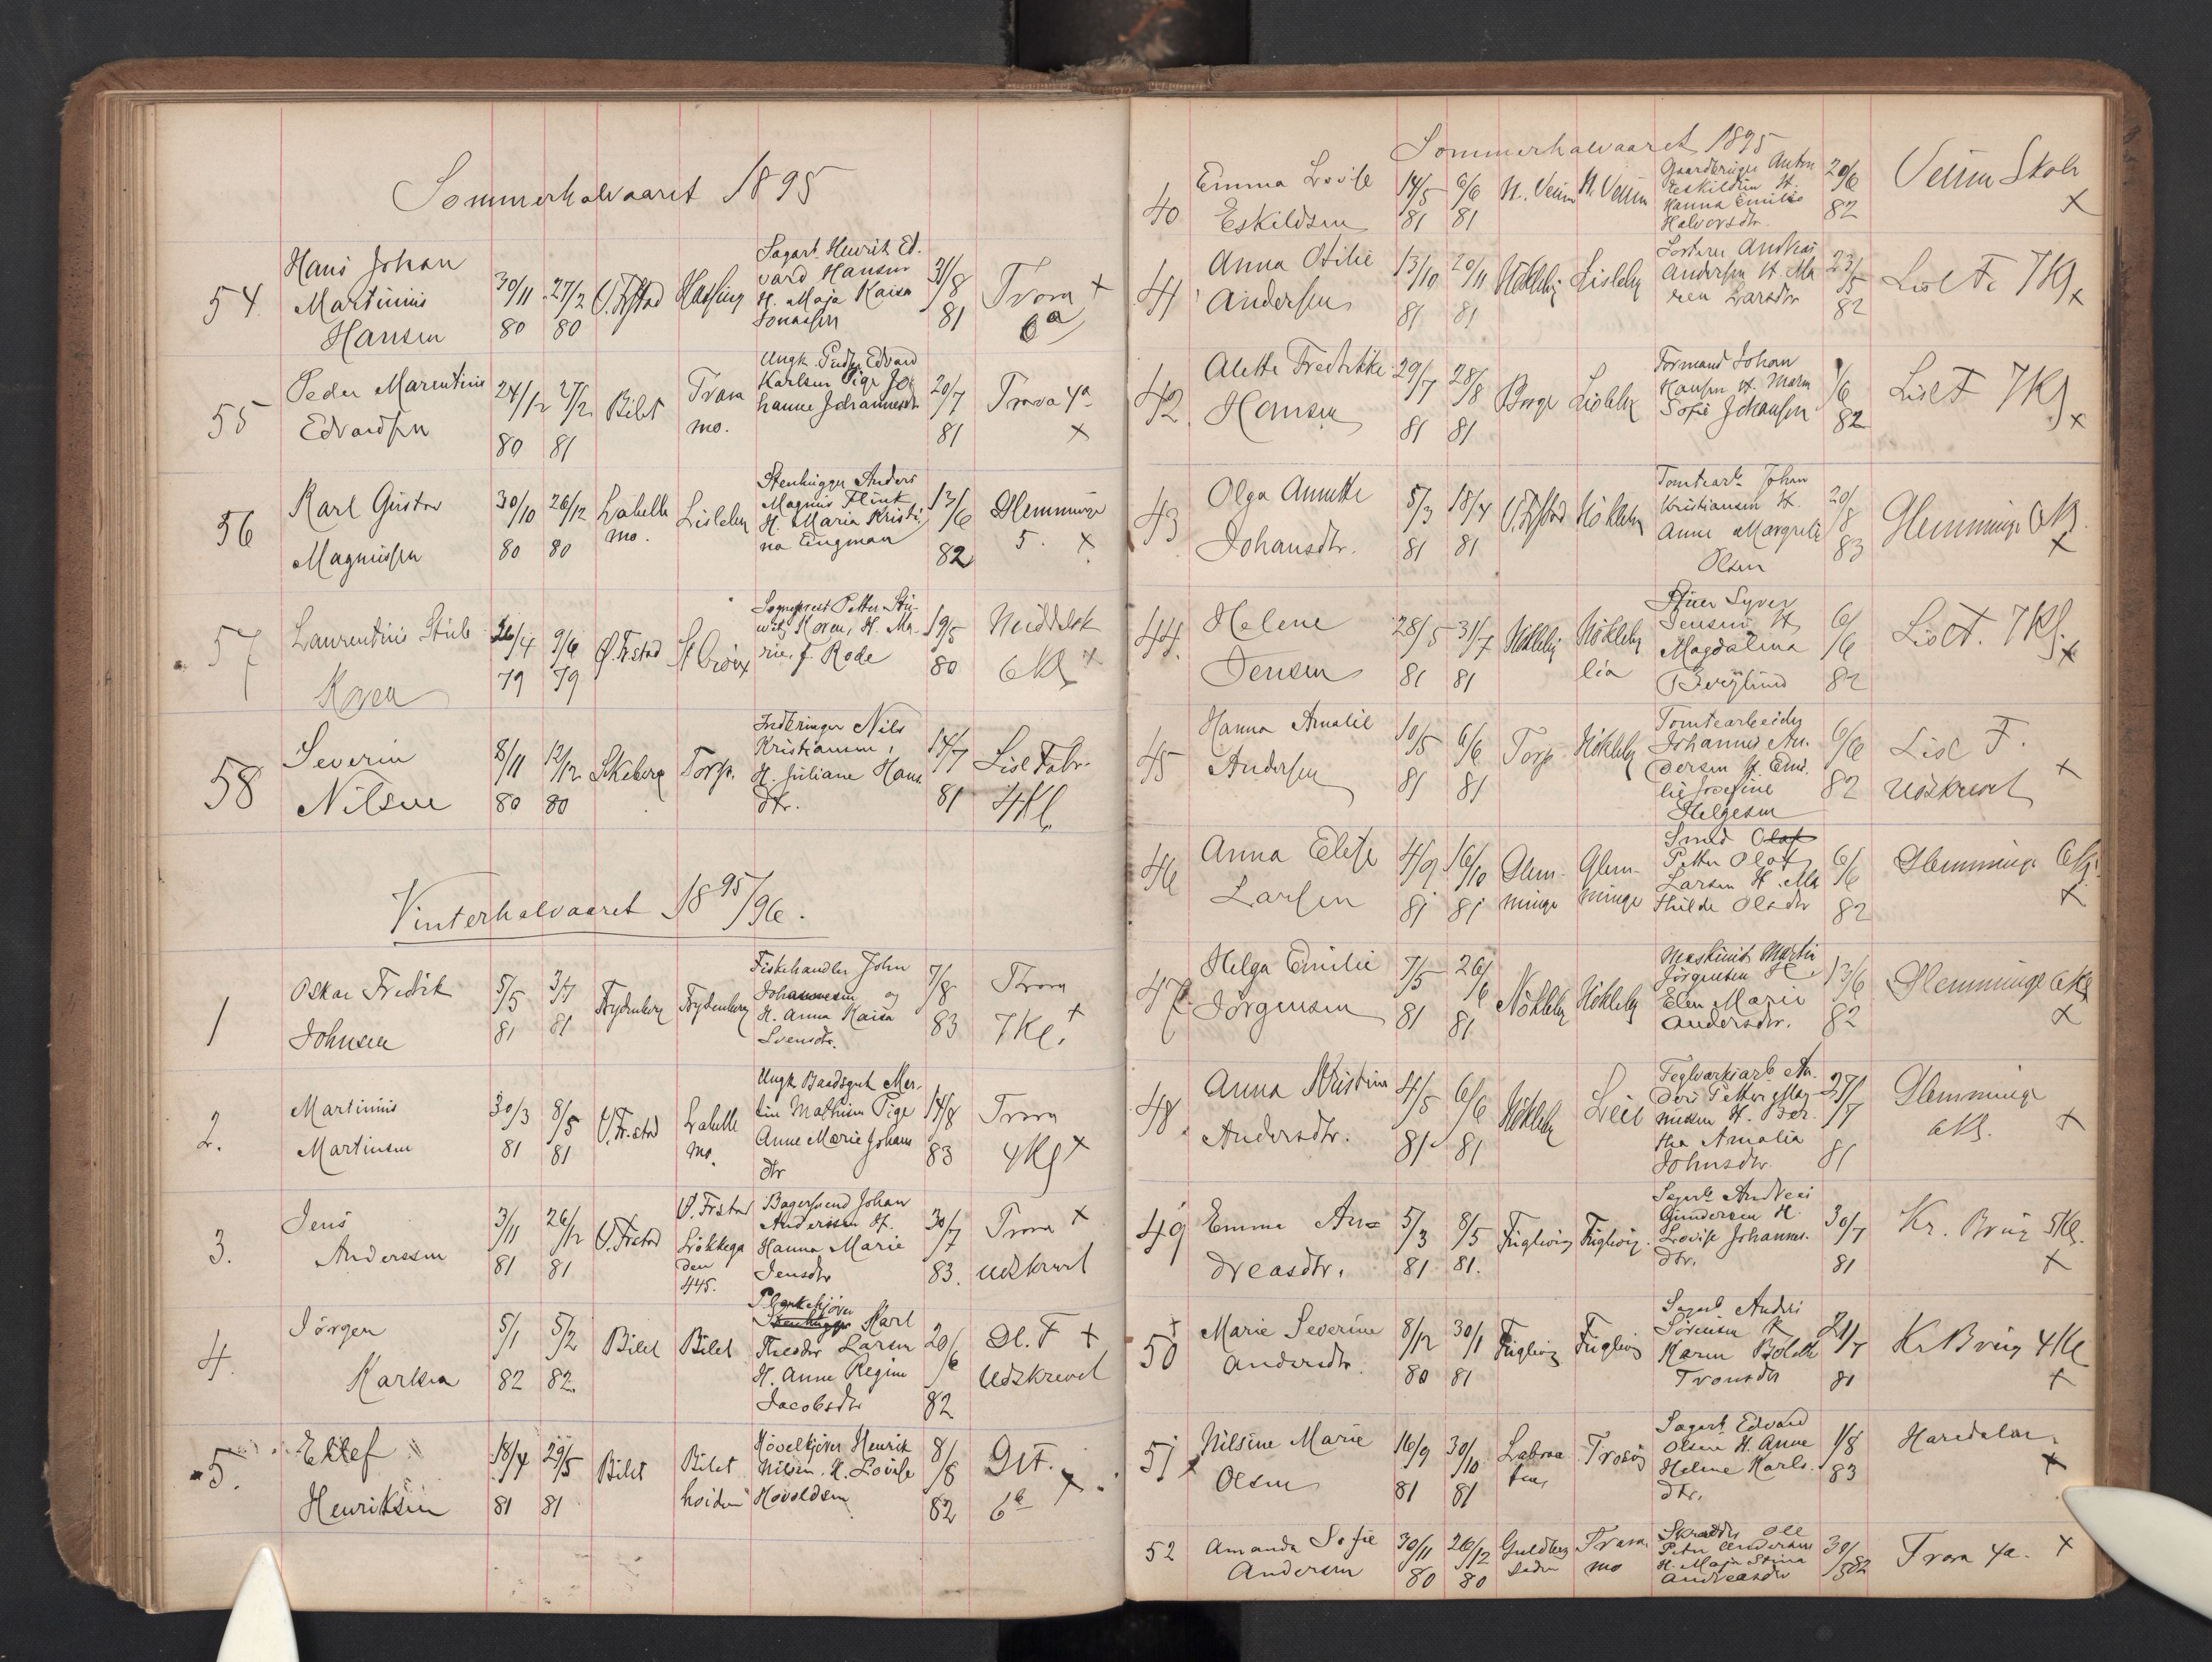 Sommerhalvaaret 1895
54. Hans Johan
Martinius
Hansen
30/11 80
27/2 80
Ø. Frstad
Sagarb. Henrik Ed.
vard Hansen
H. Maja Kaisa
Jonassen
31/8 81
Trara
6a
55 Peder Marentinius
Edvardsen
24/12 80
27/2 81
Bilet
Trara
mo.
Ungk. Edvard
Karlsen Pige Jo
hanne Johannesdt
20/7 81
Trara 4a
56 Karl Gustav
Magnussen
30/10 80
26/12 80
Labella
mo.
Lisleby
Stenhugger Anders
Magnus Flink
H. Maria Kristi
na Engman
13/6 82
Glemminge
5.
57 Laurentius Stub
Koren
26/4 79
9/6 79
Ø. Frstad
St Croix
Sogneprest Petter Stu
witz Koren, H. Ma
rie, f. Rode
19/5 80
Middelsk
6 Kl
58 Severin
Nilsen
8/11 80
12/12 80
Skeberg
Torp.
Indbringer Nils
Kristiansen,
H. Juliane Hans
dtr.
14/7 81
Lisl Fabr.
4 Kl.
Vinterhalvaaret 1895/96.
1 Oskar Fredrik
Johnsen
5/5 81
3/7 81
Frydenberg
Frydenberg
Fiskehandler John
Johannesen og
H. Anna Kaisa
Svensdtr.
7/8 83
Trara
7 Kl.
2. Martinius
Martinsen
30/3 81
8/5 81
Ø. Fr.stad
Labella
mo.
Ungk Baadsgut Mar
tin Mathisen Pige
Anne Marie Johans
dtr
14/8 83
Trara
4 Kl
3. Jens
Anderssen
3/11 81
26/12 81
Ø. Frstad
Ø. Frstad
Løkkega
den
445.
Bagersvend Johan
Anderssen H.
Hanna Marie
Jensdtr
30/7 83.
Trara
udskrevet
4. Jörgen
Karlsen
5/1 82
5/2 82.
Bilet
Bilet
Plankekjører
Stenhugger Karl
Theodor Larsen
H. Anne Regine
Jacobsdtr
20/6 82
Gl. F
Udskrevet
5. Ellef
Henriksen
18/4 81
29/5 81
Bilet
Bilet
hoiden
Høvelkjører Henrik
Nilsen. H. Lovise
Hovoldsen
8/8 82
Gl F.
6b
Sommerhalvaaret 1895
40 Emma Lovise
Eskildsen
14/5 81
6/6 81
N. Veum
N. Veum
Gaardbruger Anton
Eskildsen H.
Hanna Emilie
Halvorsdtr.
29/6 82
Veum Skole
41 Anna Otilie
Andersen
13/10 81
20/11 81
Nökleby
Lisleby
Andreas
Andersen H. Ma
ren Larsdtr
23/5 82
Lisl F. 7 Kl
42. Alette Fredrikke
Hansen
29/7 81
28/8 81
Borge
Lisleby
Formand Johan
Hansen H. Maren
Sofie Johansen
1/6 82
Lisl F 7 Kl
43 Olga Annette
Johansdtr.
5/3 81
18/4 81
Ø. Frstad
Nökleby
Tomtearb. Johan
Kristiansen H.
Anne Margrete
Olsen
20/8 83
Glemminge 6 Kl.
44. Helene
Jensen
28/5 81
31/7 81
Nökleby
Nökleby
lia
Syver
Jensen H
Magdalena
6/6 82
Lisl F. 7 Kl.
45 Hanna Amalie
Andersen
10/5 81
6/6 81
Torp
Nökleby
Tomtearbeider
Johannes An.
dersen H. Emi.
lie Josefine
Helgesen
6/6 82
Lisl F.
udskrevet
46 Anna Elise
Larsen
4/9 81
16/10 81
Glem-
minge
Glem-
minge
Smed Olaf
Petter Olaf
Larsen H. Ma
thilde Olsdtr
6/6 82
Glemminge 6 Kl.
47. Helga Emilie
Jörgensen
7/5 81
26/6 81
Nökleby
Nökleby
Maskinist Martin
Jörgensen H.
Elen Marie
Andersdtr.
13/6 82
Glemminge 6 Kl
48. Anna Kristine
Andersdtr.
4/5 81
6/6 81
Nökleby
Leie
Teglverksarb. An.
ders Petter Mag
nussen H. Ber.
tha Amalia
Johnsdtr.
27/7 81
Glemminge
6 Kl.
49 Emma An=
dreasdtr.
5/3 81
8/5 81.
Fuglevig
Fuglevig.
Sagarb. Andreas
Gundersen H.
Lovise Johannes.
dtr.
30/7 81
Kr. Brug 5 Kl.
50 Marie Severine
Andersdtr.
8/12 80
30/1 81
Fuglevig
Fuglevig
Sagarb. Anders
Sörensen H
Karen Bolette
Tronsdtr
21/7 81
Kr Brug 4 Kl
51 Nilsine Marie
Olsen
16/9 81
30/10 81
Labraa
ten
Trosvig
Sagarb. Edvard
Olsen H. Anne
Helene Karls.
dtr.
1/8 83
Haredalen
52 Amanda Sofie
Andersen
30/11 80
26/12 80
Guldberg
Trara
mo
Skrædder Ole
Peter Andersen
H. Maja Stina
Andreasdtr
Trara 4a.